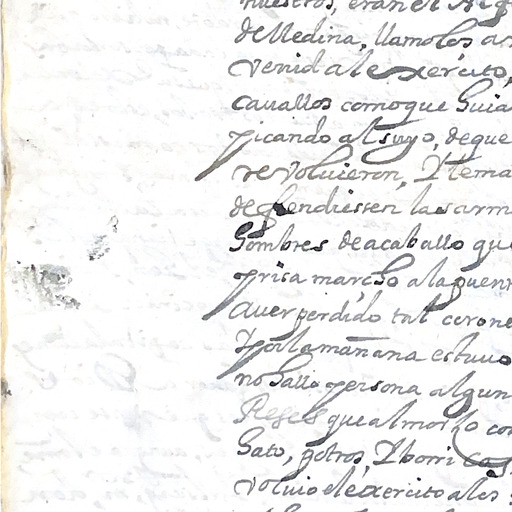 nuestros, eran el Alg
de Medina, llamolos as
venid al exército,
cauallos como que Guia
picando al suyo, de que
revoluieron, Y tema
defendiessen las arm
Hombres de a caballo que
prisa marcho a la puen
Auer perdido tal corone
Y por la mañana estuuo
no hallo persona algun
Reses que almorzo con
Gato, y otros, Y borri cos
voluio el exercito a les